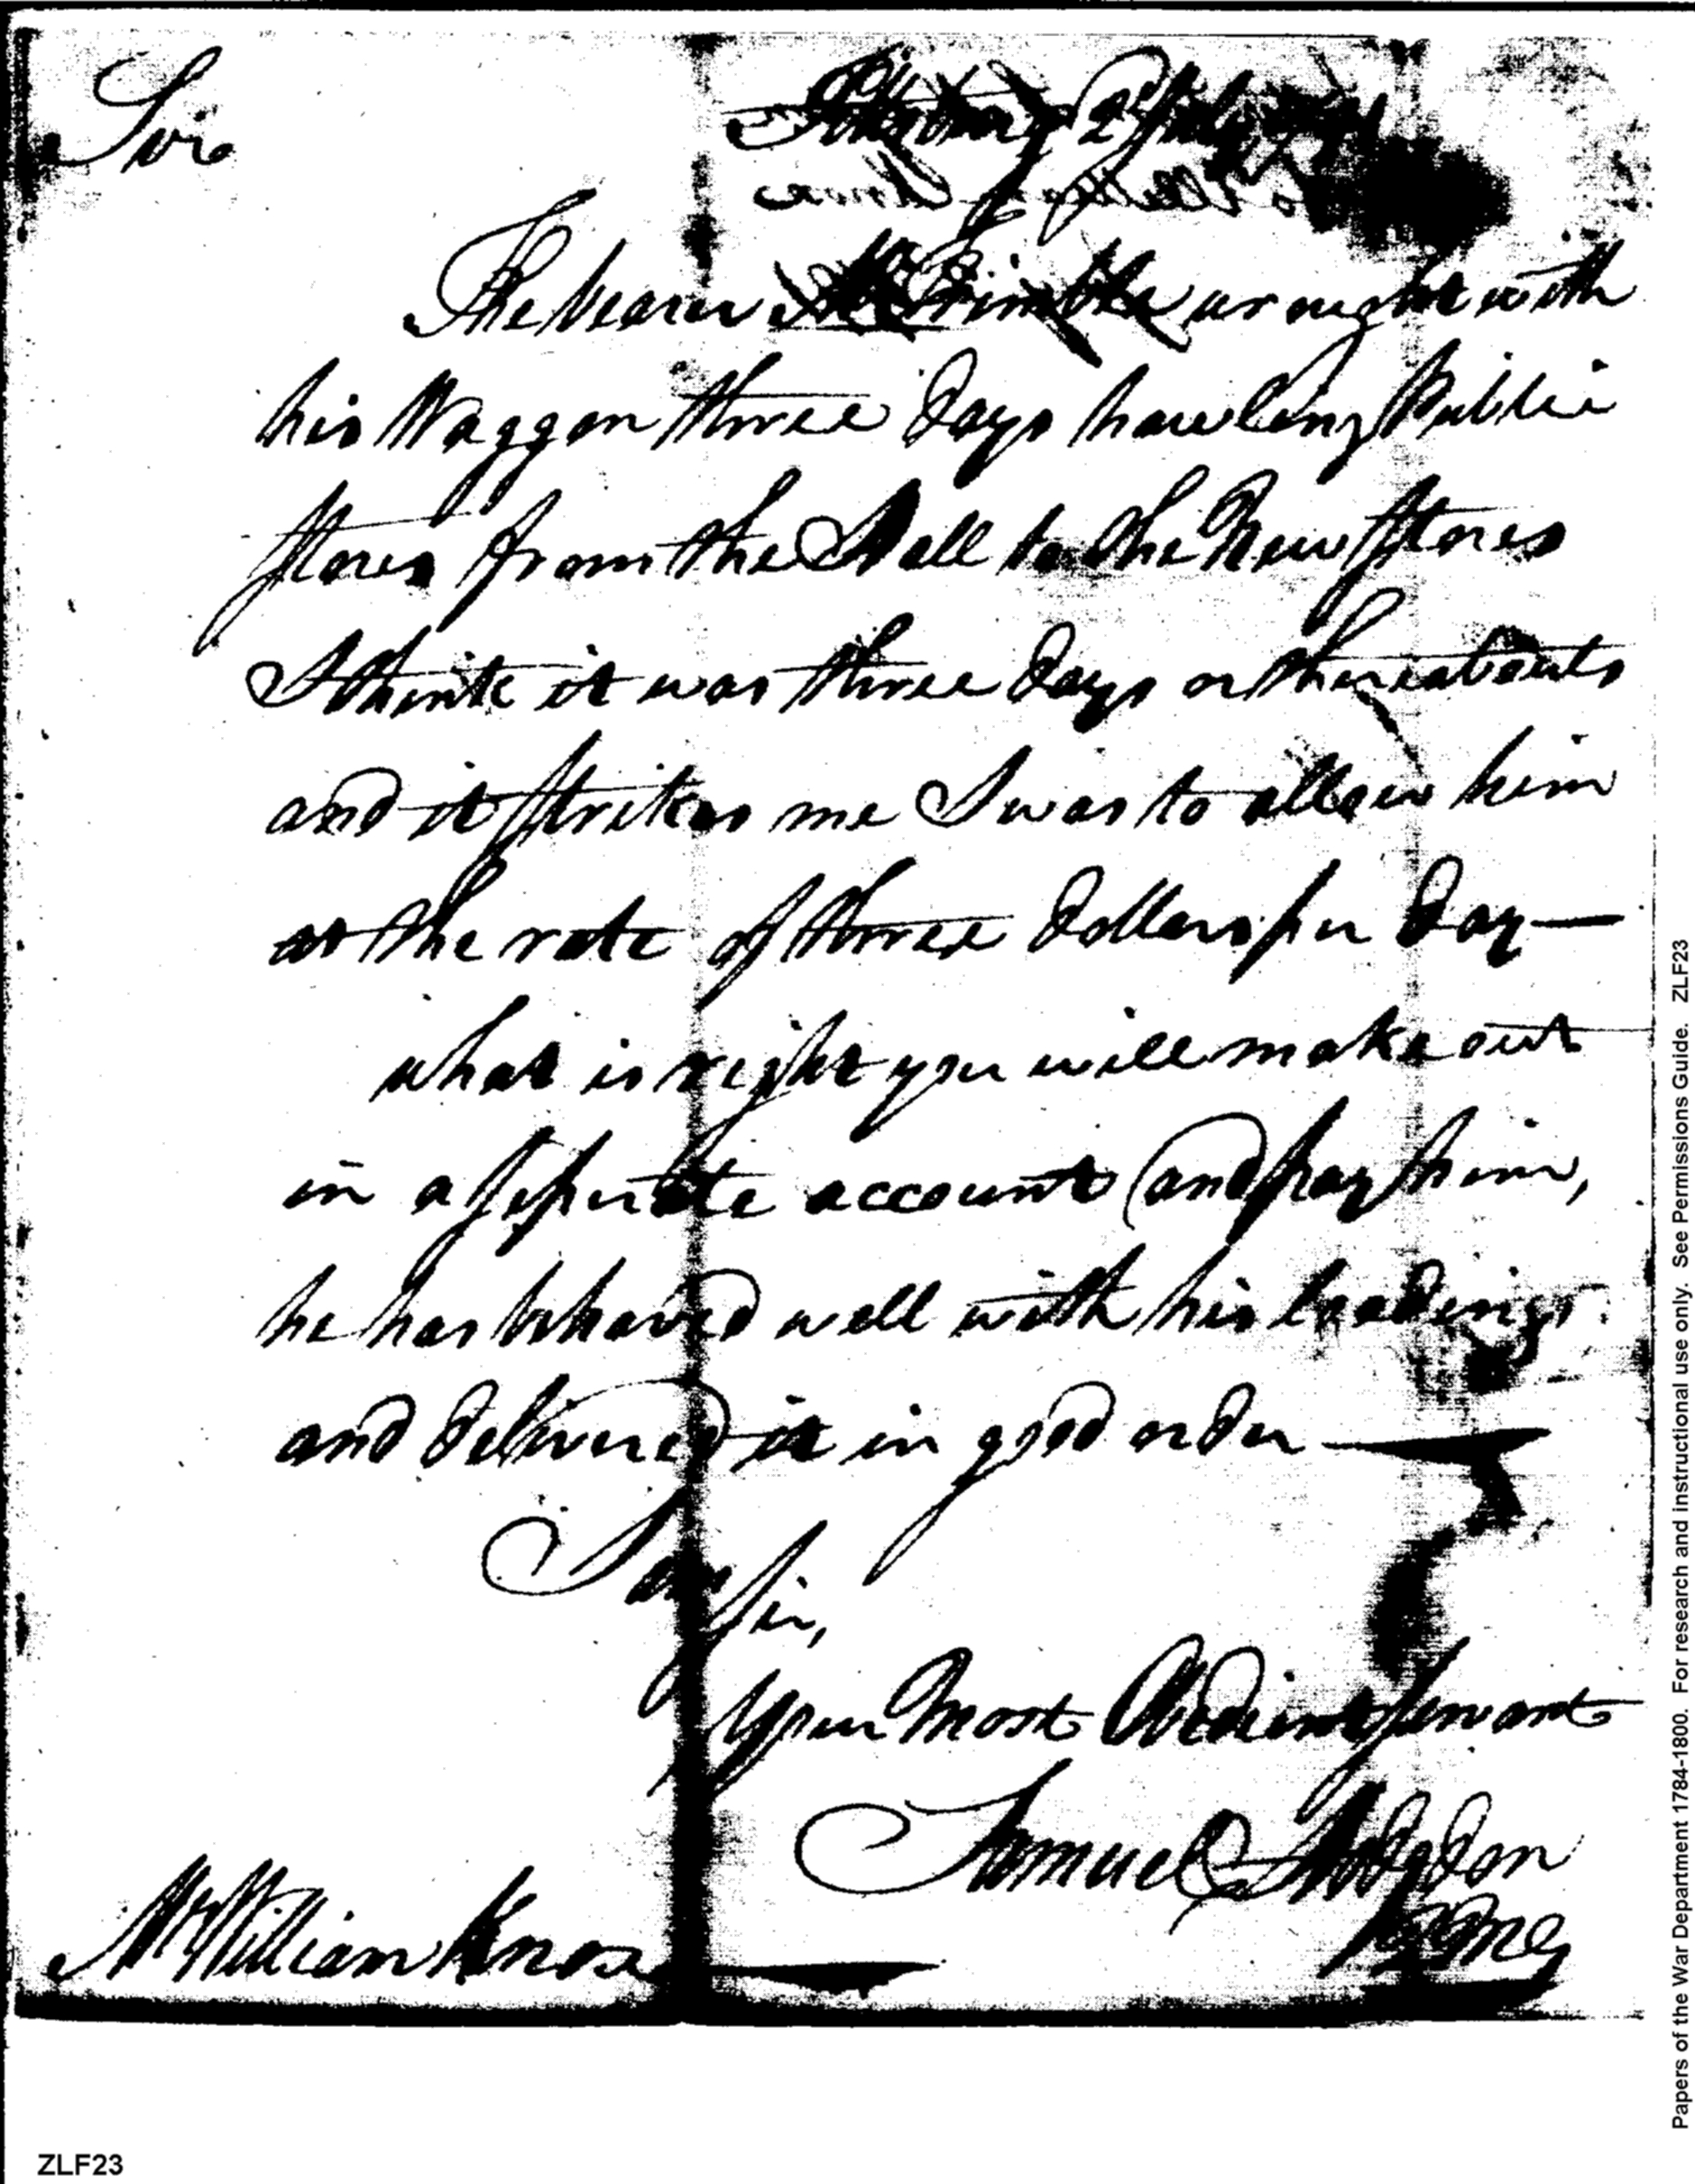 Sir
Pittsburg 2d July
The bearer Mr Trimble wrought with
his Waggon three days hawling Public
stores from the Hall to the New Stores
I think it was three days or thereabouts
and it strikes me I was to allow him
at the rate of three dollars per day —
what is right you will make out
in a seperate account and pay him,
he has behaved well with his loadings
and delivered it in good order —
I am Sir,
Your Most Obedient Servant
Samuel Hodgdon
QMG
Mr William Knox
Papers of the War Department 1784-1800. For research and instructional use only. See Permissions Guide. ZLF23
ZLF23